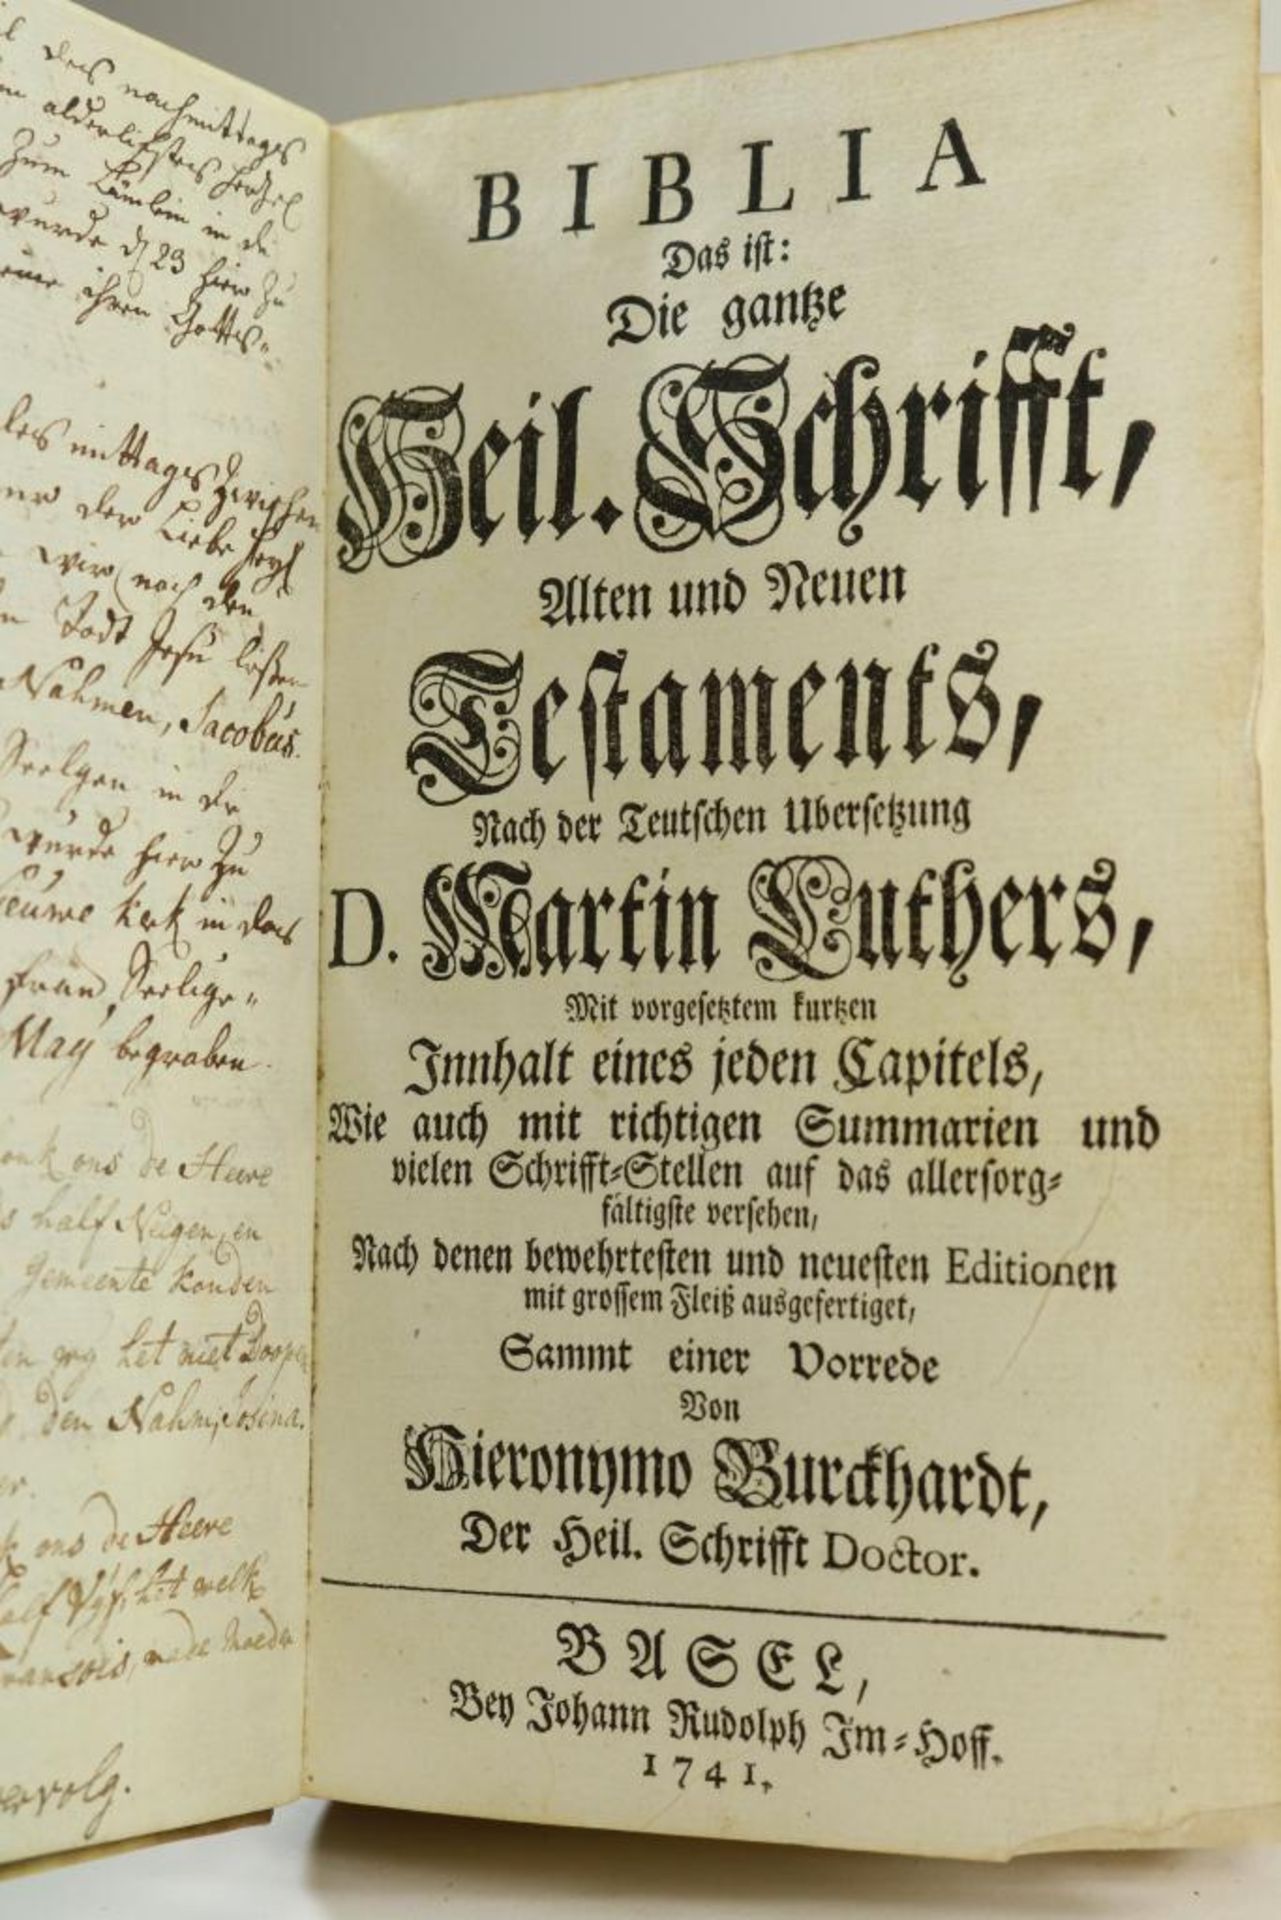 des nachmittages
zum Lämlein in de
wurde d 23 hier zu
ihren Gottes=
des mittages Zwischen
der Liebe
wir nach den
Todt Jesu
Nahmen, Jacobus.
Seelgen in de
wurde hier zu
kerk in das
frau, Seelige=
May begraben.
ons de Heere
half Neegen, en
Gemeente konden
wy het niet
den Nahm, Josina.
ons de Heere
half Vyf, het welk
vervolg.
BIBLIA
Das ist:
Die gantze
Heil. Schrifft,
Alten und Neuen
Testaments,
Nach der Teutschen Ubersetzung
D. Martin Luthers,
Mit vorgesetztem kurtzen
Innhalt eines jeden Capitels,
Wie auch mit richtigen Summarien und
vielen Schrifft=Stellen auf das allersorg=
fältigste versehen,
Nach denen bewehrtesten und neuesten Editionen
mit grossem Fleiß ausgefertiget,
Sammt einer Vorrede
Von
Hieronymo Burckhardt,
Der Heil. Schrifft Doctor.
BASEL,
Bey Johann Rudolph Im=Hoff.
1741.